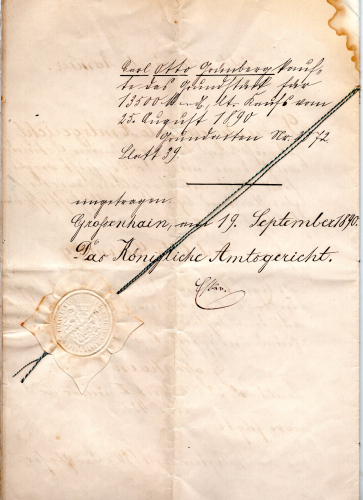 Carl Otto Grünberg kauf-
te das Grundstück für
13500 Mark, lt. Kaufs vom
25. August 1890
Grundacten Nr. 72
Blatt 39
eingetragen.
Großenhain, am 19. September 1890.
Das Königliche Amtsgericht.